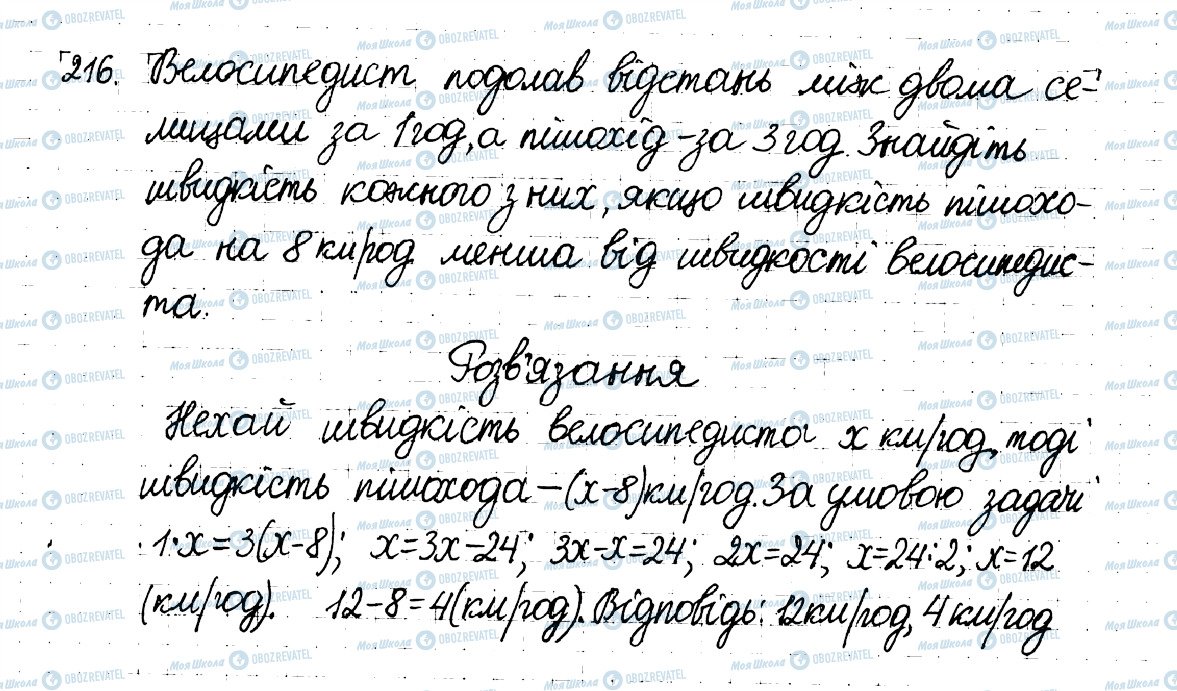 216. Велосипедист подолав відстань між двома се-
лищами за 1 год, а пішохід – за 3 год. Знайдіть
швидкість кожного з них, якщо швидкість пішохо-
да на 8 км/год менша від швидкості велосипедис-
та.
Розв'язання
Нехай швидкість велосипедиста x км/год, тоді
швидкість пішохода – (x-8) км/год. За умовою задачі
1·x=3(x-8); x=3x-24; 3x-x=24; 2x=24; x=24:2; x=12
(км/год). 12-8=4(км/год). Відповідь: 12км/год, 4 км/год